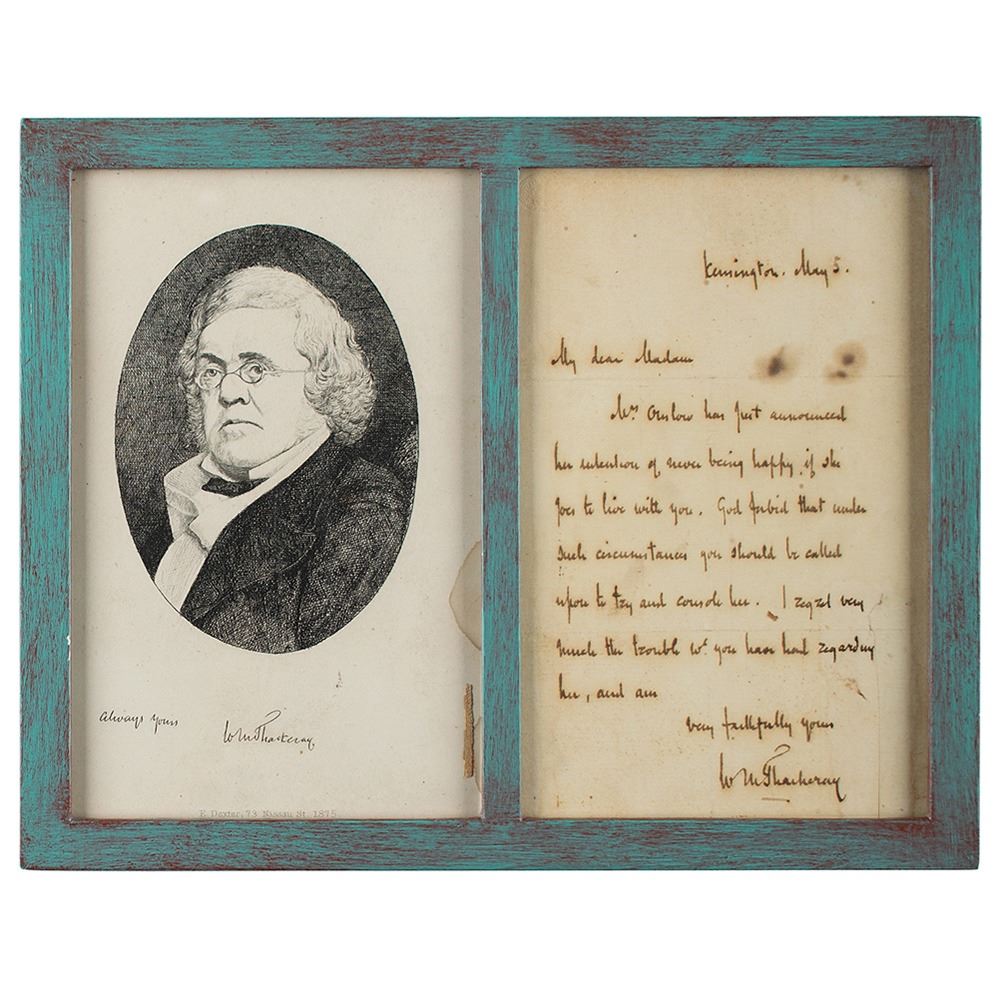 Always yours
W M Thackeray
E Dexter, 73 Nassau St 1875
Kensington. May 5.
My dear Madam
Mrs Onslow has just announced
her intention of never being happy if she
goes to live with you. God forbid that under
such circumstances you should be called
upon to try and console her. I regret very
much the trouble wh you have had regarding
her, and am
very faithfully yours
W M Thackeray